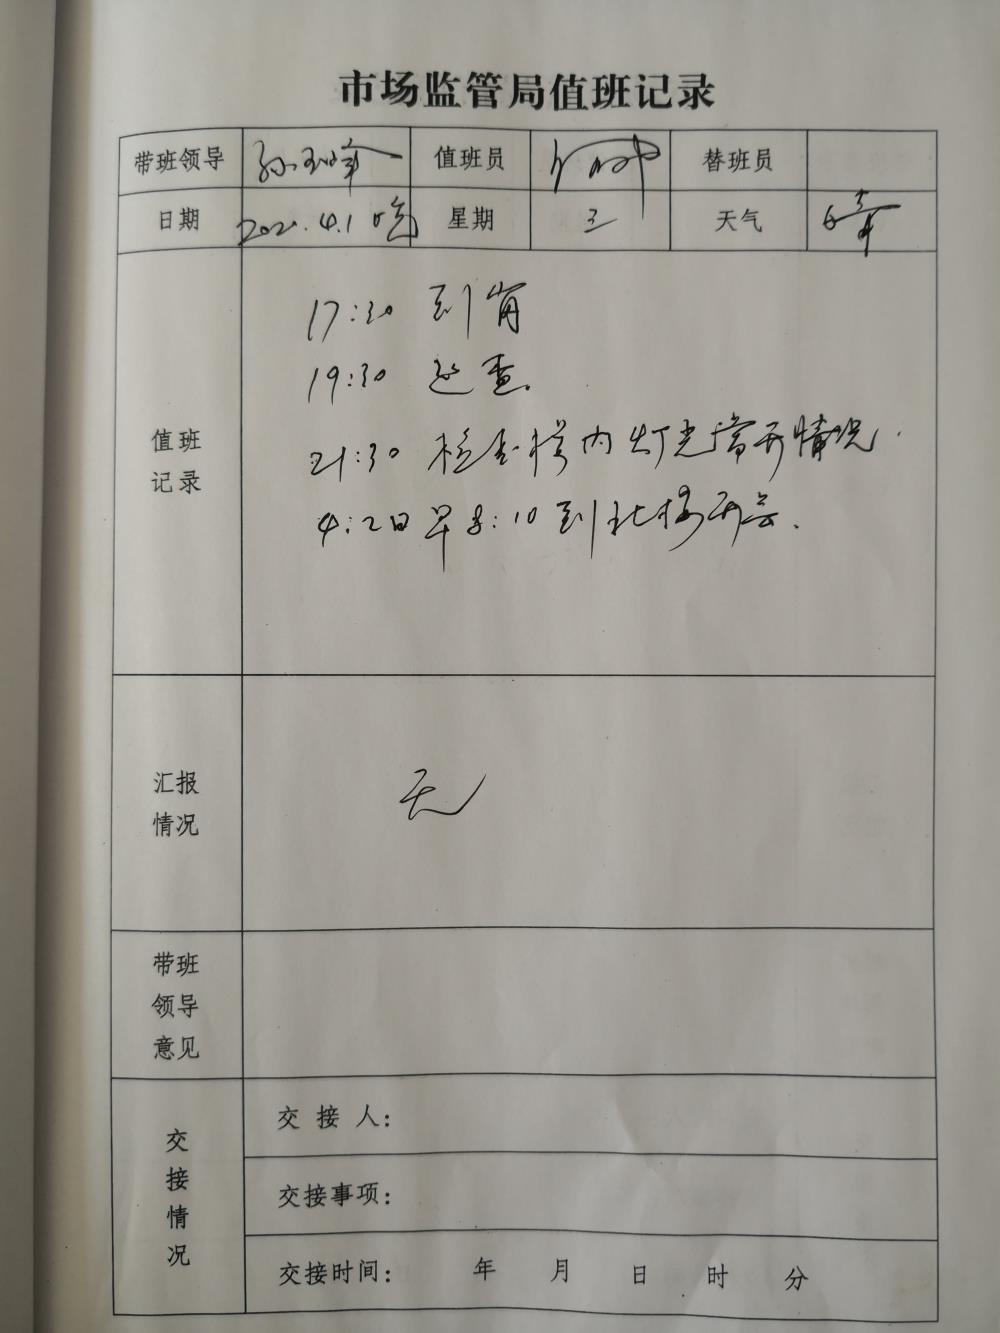 市场监管局值班记录
带班领导 值班员 替班员
日期 2020.4.1 晚 星期 三 天气 晴
值班记录
17:30 到岗
19:30 巡查.
21:30 检查楼内灯光常开情况.
4:2日早8:10到北楼
汇报情况
无
带班领导意见
交接情况
交接人:
交接事项:
交接时间: 年 月 日 时 分